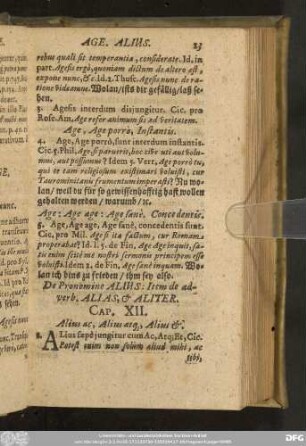 AGE. ALIUS. 23
rebus quali sit temperantia, considerate. Id. in
part. Agesis ergò, quoniam dictum de altero est,
expone nunc, &c. Id. 2. Thusc. Agesis nunc de ra-
tione videamus. Wolan/ ists dir gefällig/ laß se-
hen.
3. Agesis interdum disjungitur. Cic. pro
Rose. Am. Age refer animum sis ad veritatem.
Age, Age porrò, Instantis.
4. Age, Age porrò, sunt interdum instantis.
Cic. 5. Phil. Age, si paruerit, hoc iste uti aut volu-
mus, aut possumus? Idem 5. Verr. Age porrò tu,
qui te tam religiosum existimari voluisti, cur
Tauromenitanis frumentum imperasti? Nu wo-
lan/ weil du für so gewissenhafftig hast wollen
gehalten werden/ warumb/ ꝛc.
Age: Age age: Age sanè, Concedentis.
5. Age, Age age, Age sanè, concedentis sunt.
Cic. pro Mil. Age si ita factum, cur Romam
properabat? Id. l. 5. de Fin. Age Age inquit, sa-
tis enim scitè me nostri sermonis principem esse
voluisti. Idem 2. de Fin. Age sanè inquam. Wo-
lan ich bins zu frieden/ ihm sey also.
De Pronomine ALIUS: Item de ad-
verb. ALIAS, & ALITER.
CAP. XII.
Alius ac, Alius atq;, Alius &.
1. ALius sæpè jungitur cum Ac, Atq; Et, Cic.
Potest enim non solùm aliud mihi, ac